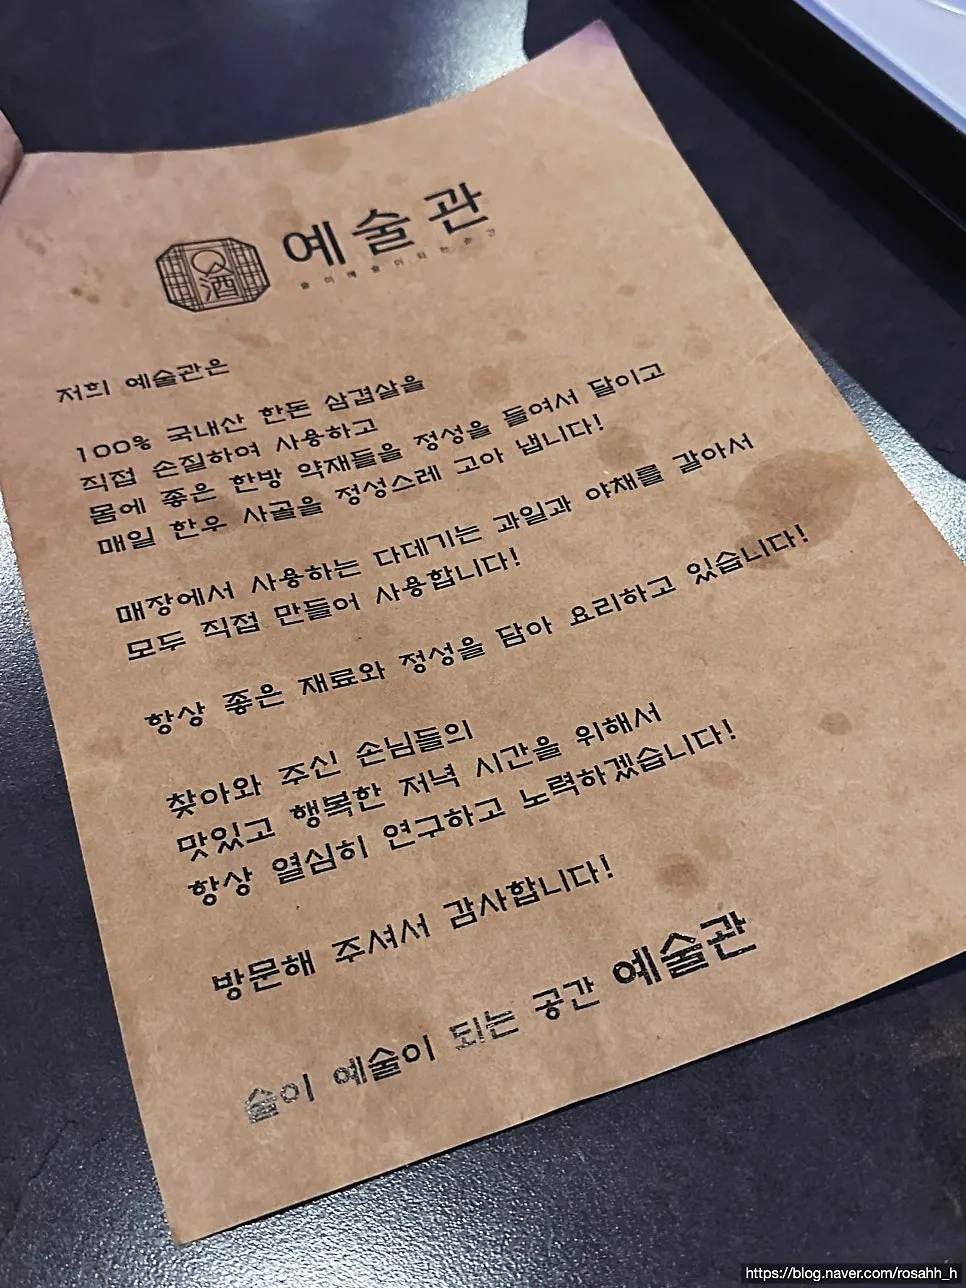 酒
예술관
술이 예술이 되는 순간
저희 예술관은
100% 국내산 한돈 삼겹살을
직접 손질하여 사용하고
몸에 좋은 한방 약재들을 정성을 들여서 달이고
매일 한우 사골을 정성스레 고아 냅니다!
매장에서 사용하는 다데기는 과일과 야채를 갈아서
모두 직접 만들어 사용합니다!
항상 좋은 재료와 정성을 담아 요리하고 있습니다!
찾아와 주신 손님들의
맛있고 행복한 저녁 시간을 위해서
항상 열심히 연구하고 노력하겠습니다!
방문해 주셔서 감사합니다!
술이 예술이 되는 공간 예술관
https://blog.naver.com/rosahh_h